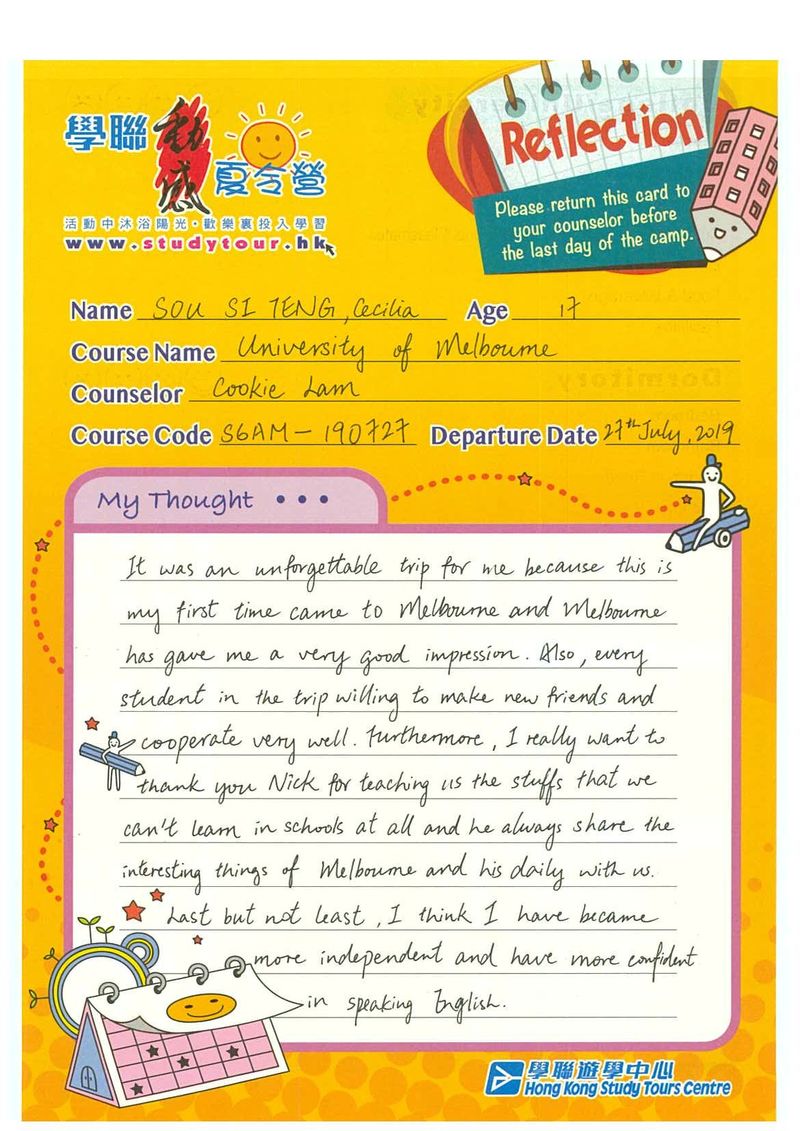 學聯 動感 夏令營
活動中沐浴陽光·歡樂裏投入學習
www.studytour.hk
Reflection
Please return this card to
your counselor before
the last day of the camp.
Name SOU SI TENG, Cecilia Age 17
Course Name University of Melbourne
Counselor Cookie Lam
Course Code S6AM - 190727 Departure Date 27th July, 2019
My Thought • • •
It was an unforgettable trip for me because this is
my first time came to Melbourne and Melbourne
has gave me a very good impression. Also, every
student in the trip willing to make new friends and
cooperate very well. Furthermore, I really want to
thank you Nick for teaching us the stuffs that we
can't learn in schools at all and he always share the
interesting things of Melbourne and his daily with us.
Last but not least, I think I have became
more independent and have more confident
in speaking English.
學聯遊學中心
Hong Kong Study Tours Centre